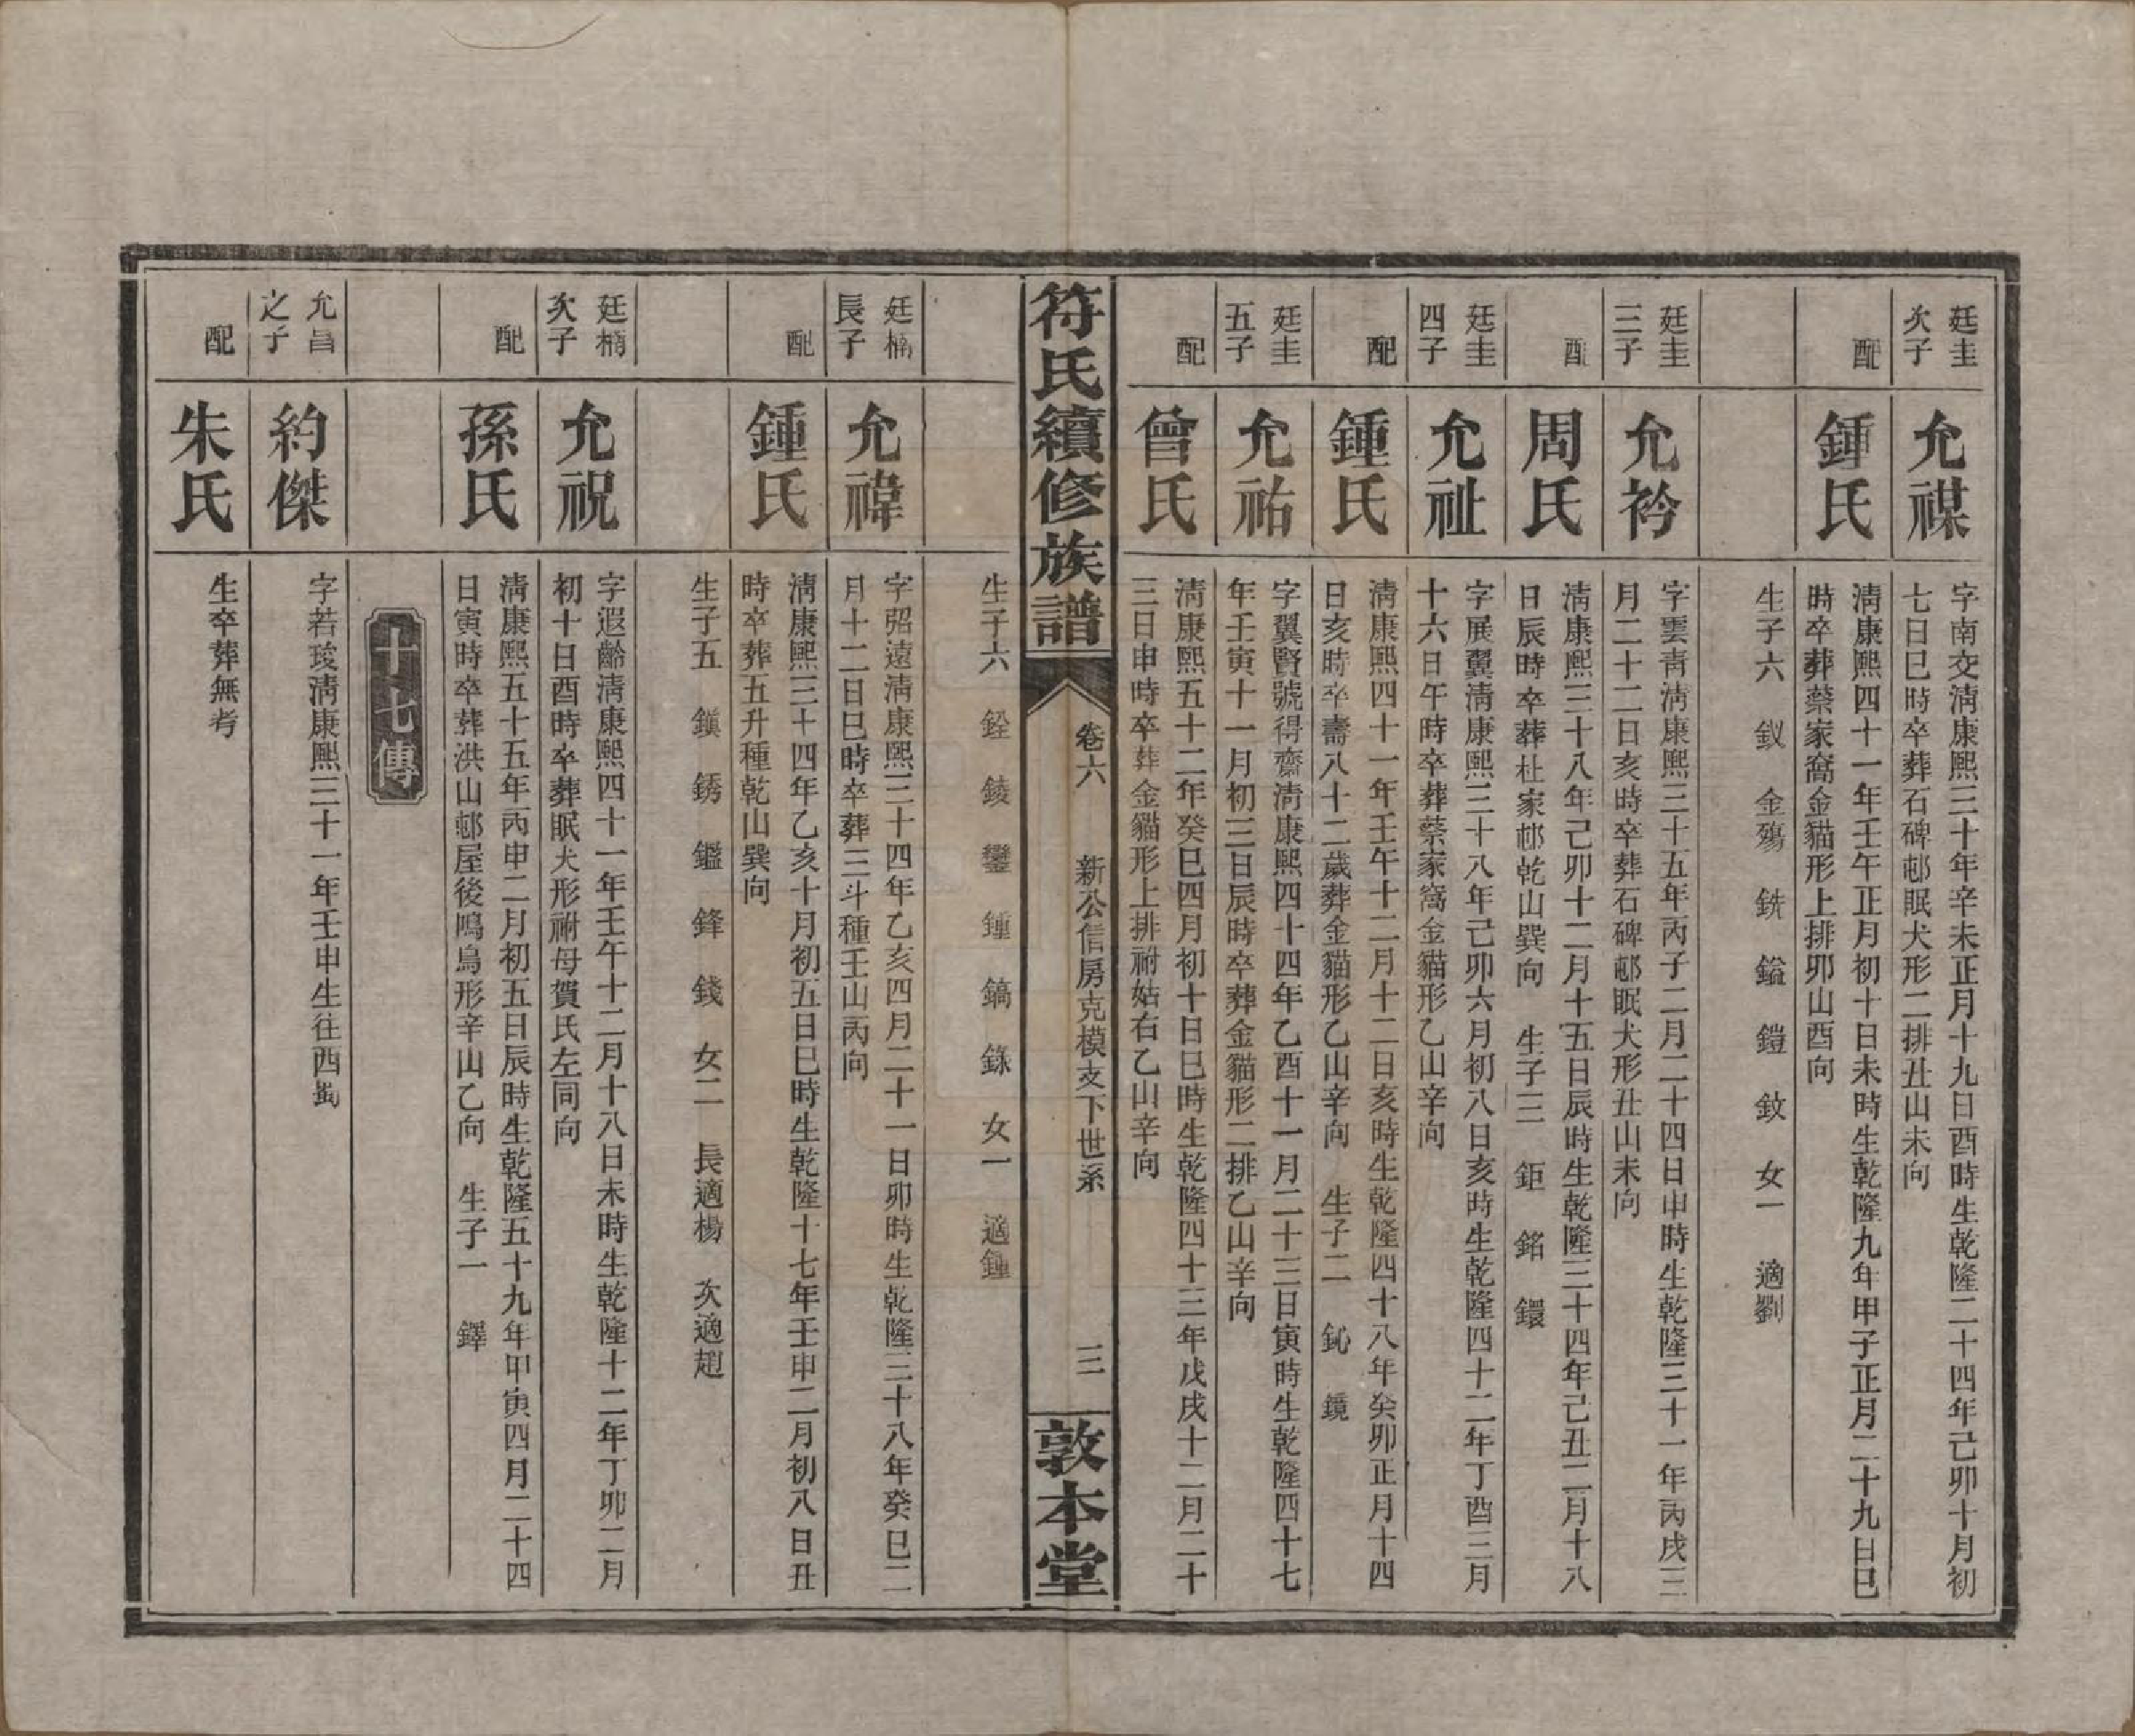 廷圭
次子
允禖
字南交清康熙三十年辛未正月十九日酉時生乾隆二十四年己卯十月初
七日巳時卒葬石碑邨眠犬形二排丑山未向
配
鍾氏
清康熙四十一年壬午正月初十日未時生乾隆九年甲子正月二十九日巳
時卒葬蔡家窩金貓形上排卯山酉向
生子六 釵 金殤 銑 鎰 鎧 釹 女一 適劉
廷圭
三子
允衿
字雲青清康熙三十五年丙子二月二十四日申時生乾隆三十一年丙戌三
月二十二日亥時卒葬石碑邨眠犬形丑山未向
配
周氏
清康熙三十八年己卯十二月十五日辰時生乾隆三十四年己丑二月十八
日辰時卒葬杜家邨乾山巽向 生子三 鉅 銘 鐶
廷圭
四子
允祉
字展翼清康熙三十八年己卯六月初八日亥時生乾隆四十二年丁酉三月
十六日午時卒葬蔡家窩金貓形乙山辛向
配
鍾氏
清康熙四十一年壬午十二月十二日亥時生乾隆四十八年癸卯正月十四
日亥時卒壽八十二歲葬金貓形乙山辛向 生子二 鈊 鏡
廷圭
五子
允祐
字翼賢號得齋清康熙四十四年乙酉十一月二十三日寅時生乾隆四十七
年壬寅十一月初三日辰時卒葬金貓形二排乙山辛向
配
曾氏
清康熙五十二年癸巳四月初十日巳時生乾隆四十三年戊戌十二月二十
三日申時卒葬金貓形上排祔姑右乙山辛向
符氏續修族譜
卷六 新公信房克模支下世系
三
敦本堂
生子六 銓 錂 鑾 鍾 鎬 銾 女一 適鍾
廷楠
長子
允禕
字弨遠清康熙三十四年乙亥四月二十一日卯時生乾隆三十八年癸巳二
月十二日巳時卒葬三斗種壬山丙向
配
鍾氏
清康熙三十四年乙亥十月初五日巳時生乾隆十七年壬申二月初八日丑
時卒葬五升種乾山巽向
生子五 鎮 銹 鑑 鋒 錢 女二 長適楊 次適趙
廷楠
次子
允祝
字遐齡清康熙四十一年壬午十二月十八日未時生乾隆十二年丁卯二月
初十日酉時卒葬眠犬形祔母賀氏左同向
配
孫氏
清康熙五十五年丙申二月初五日辰時生乾隆五十九年甲寅四月二十四
日寅時卒葬洪山邨屋後鳴鳥形辛山乙向 生子一 鐸
十七傳
允昌
之子
約傑
字若琁清康熙三十一年壬申生往西蜀
配
朱氏
生卒葬無考